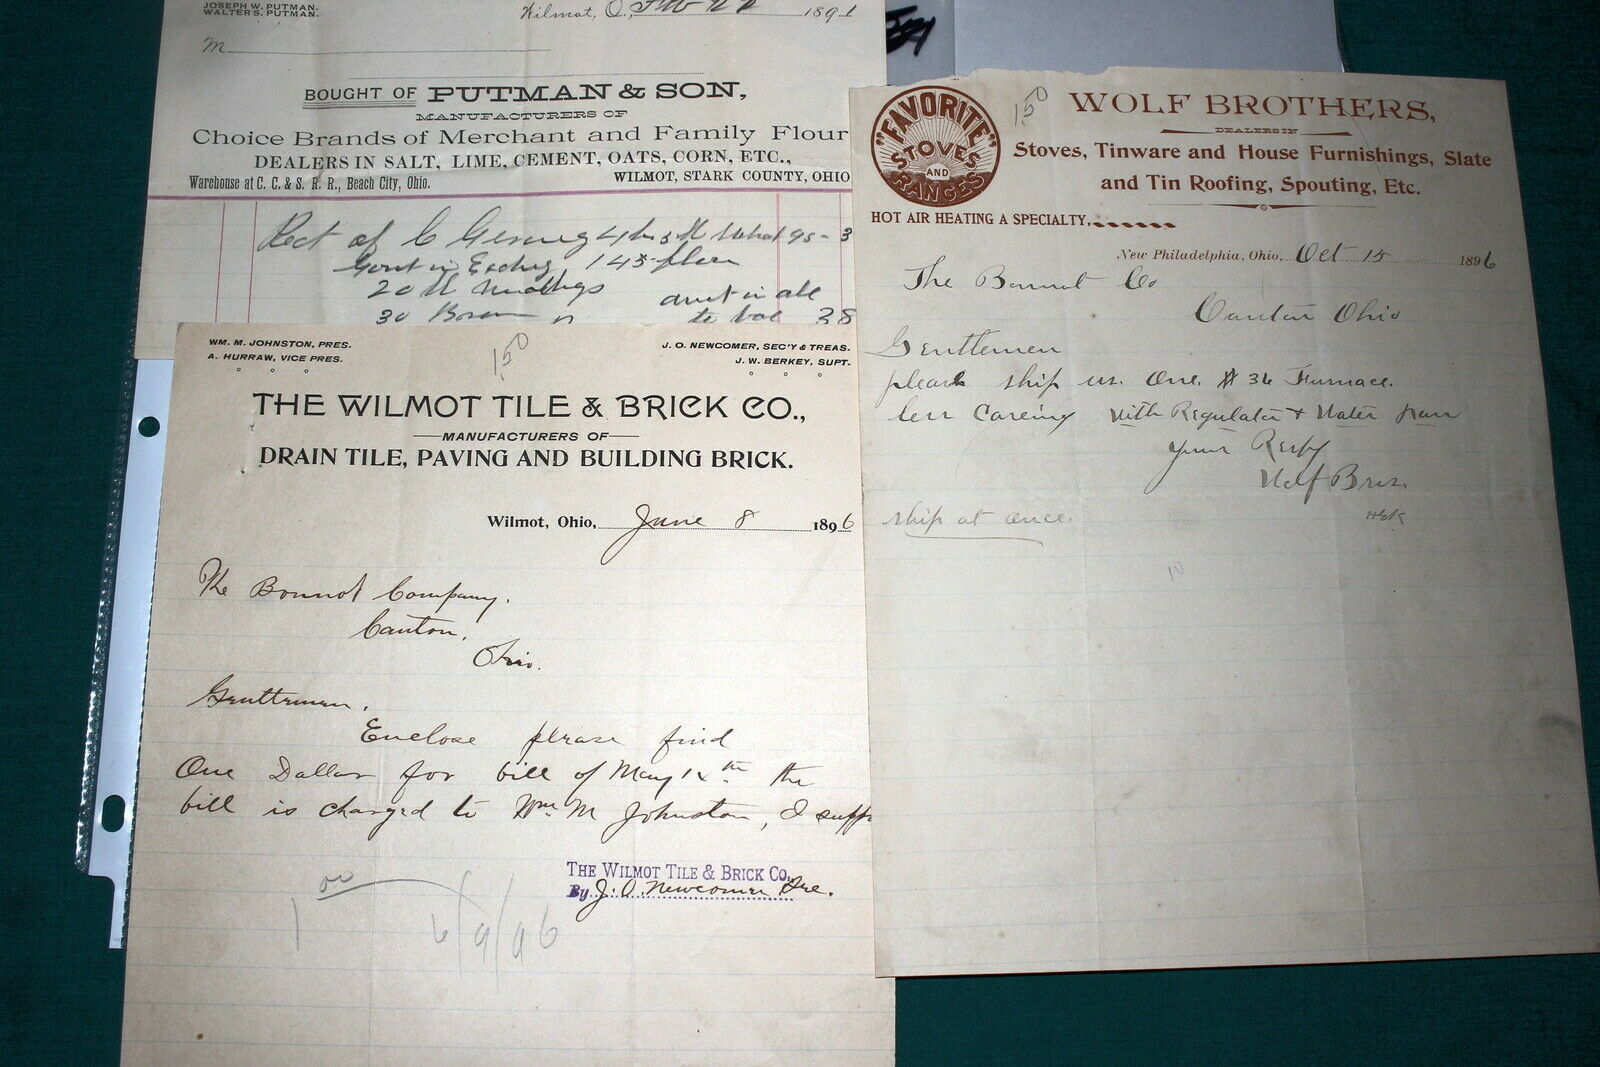 JOSEPH W. PUTMAN.
WALTER S. PUTMAN.
Wilmot, O., Feb 1891
M
BOUGHT OF PUTMAN & SON,
MANUFACTURERS OF
Choice Brands of Merchant and Family Flour
DEALERS IN SALT, LIME, CEMENT, OATS, CORN, ETC.,
Warehouse at C. C. & S. R. R., Beach City, Ohio.
WILMOT, STARK COUNTY, OHIO
Rect of C 95- 3
145
20 lb
30 38
WM. M. JOHNSTON, PRES.
A. HURRAW, VICE PRES.
1.50
J. O. NEWCOMER, SEC'Y & TREAS.
J. W. BERKEY, SUPT.
THE WILMOT TILE & BRICK CO.,
MANUFACTURERS OF
DRAIN TILE, PAVING AND BUILDING BRICK.
Wilmot, Ohio, June 8 1896
The Bonnot Company,
Canton,
Ohio.
Gentlemen,
Enclose please find
One Dollar for bill of May the
bill is charged to Wm. M Johnston, I
THE WILMOT TILE & BRICK CO.
By J. O. Newcomer
1 00
6/9/96
"FAVORITE"
STOVES
AND
RANGES
1.50
WOLF BROTHERS,
DEALERS IN
Stoves, Tinware and House Furnishings, Slate
and Tin Roofing, Spouting, Etc.
HOT AIR HEATING A SPECIALTY,
New Philadelphia, Ohio, Oct 15 1896
The Bonnot Co
Canton Ohio
Gentlemen
please ship us. One # 36 Furnace.
less Caseing with Regulator + Water pan
Yours Respy
Wolf Bros.
ship at once.
10